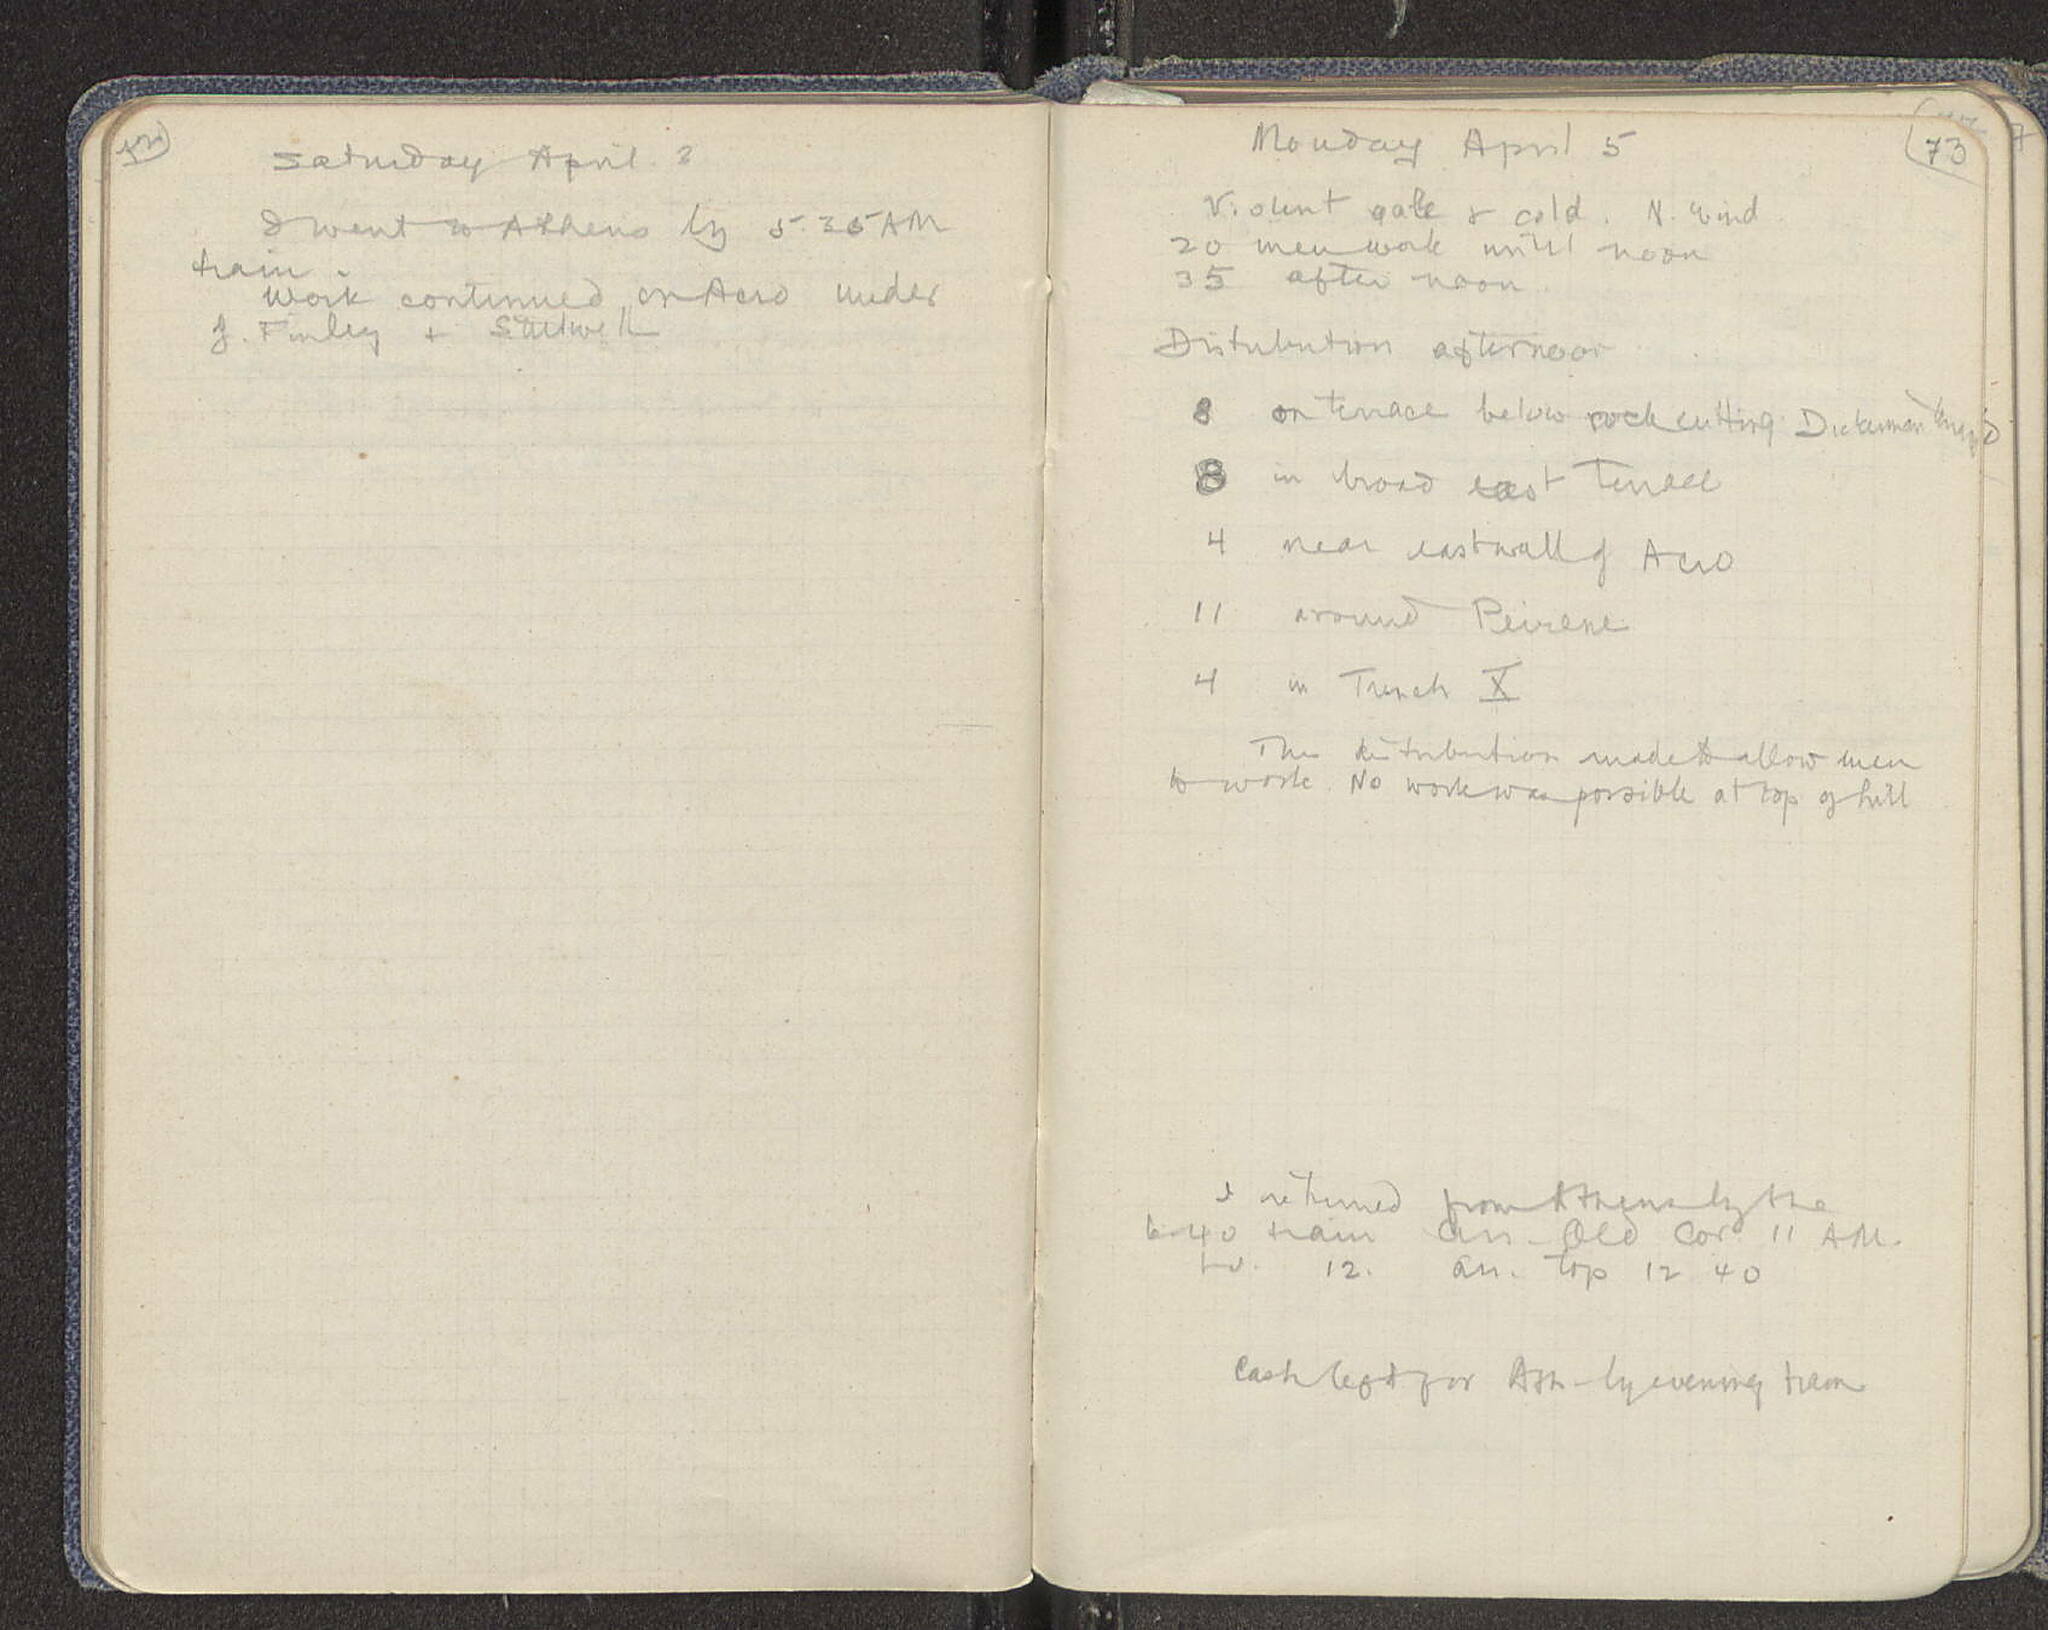 72
Saturday April 3
I went to Athens by 5.35 AM
train.
Work continued on Acro under
J. Finley + Stillwell
73
Monday April 5
Violent gale & cold. N. Wind
20 men work until noon
35 after noon
Distribution afternoon
8 on terrace below rock cutting Dickerman
8 in broad east Terrace
4 near east wall of Acro
11 around Peirene
4 in Trench X
This distribution made to allow men
to work. No work was possible at top of hill
I returned from Athens by the
6 40 train arr. Old Cor 11 AM.
Lv. 12. arr. top 12 40
Cash left for Ath - by evening train